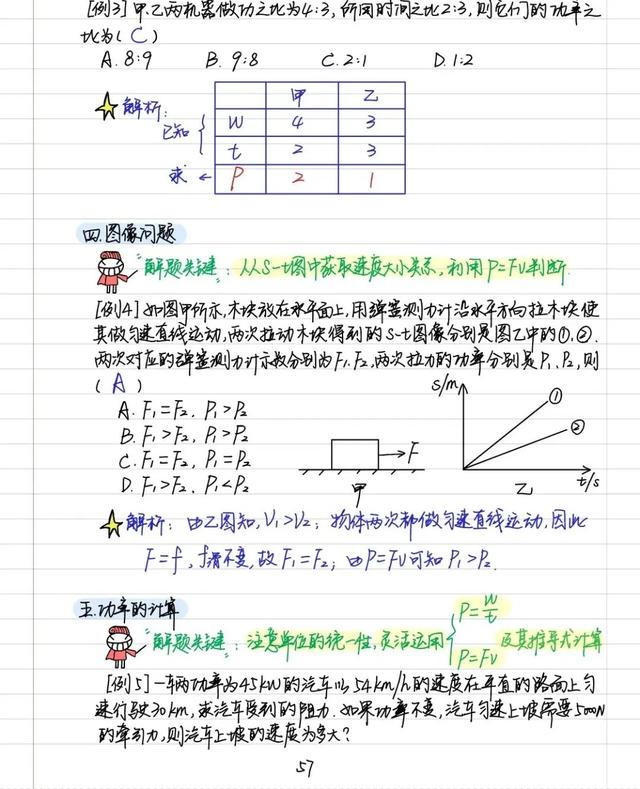 [例3] 甲.乙两机器做功之比为4:3, 所用时间之比2:3, 则它们的功率之
比为( C )
A. 8:9 B. 9:8 C. 2:1 D. 1:2
解析:
甲 乙
已知 W 4 3
t 2 3
求 ← P 2 1
四.图像问题
"解题关键": 从S-t图中获取速度大小关系, 利用P=FV判断.
[例4] 如图甲所示, 木块放在水平面上, 用弹簧测力计沿水平方向拉木块使
其做匀速直线运动, 两次拉动木块得到的S-t图像分别是图乙中的①,②.
两次对应的弹簧测力计示数分别为F₁.F₂, 两次拉力的功率分别是P₁.P₂, 则
( A )
A. F₁=F₂, P₁>P₂
B. F₁>F₂, P₁>P₂
C. F₁=F₂, P₁=P₂
D. F₁>F₂, P₁<P₂
F
甲
s/m
①
②
t/s
乙
解析: 由乙图知, V₁>V₂; 物体两次都做匀速直线运动, 因此
F=f, f滑不变, 故F₁=F₂; 由P=FV可知P₁>P₂.
五.功率的计算
"解题关键": 注意单位的统一性, 灵活运用 { P=W/t P=FV 及其推导式计算
[例5] 一车两功率为45kW的汽车以54km/h的速度在平直的路面上匀
速行驶30km, 求汽车受到的阻力. 如果功率不变, 汽车匀速上坡需要5000N
的牵引力, 则汽车上坡的速度为多大?
57